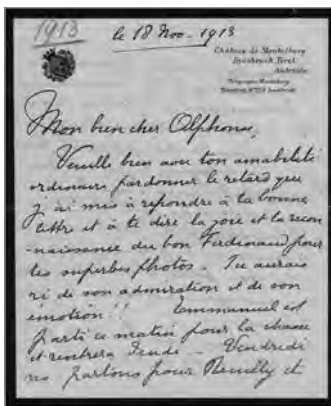 1913
le 18 Nov - 1913
Château de Mentelberg
Innsbruck Tirol
Autriche
Mon bien cher Alphonse,
Veuille bien avec ton amabilité
ordinaire pardonner le retard que
j'ai mis à répondre à ta bonne
lettre et à te dire la joie et la recon
-naissance du bon Ferdinand pour
les superbes photos. Tu aurais
ri de son admiration et de son
émotion !! Emmanuel est
parti ce matin pour la chasse
et rentrera Jeudi - Vendredi
ns partons pour Neuilly et